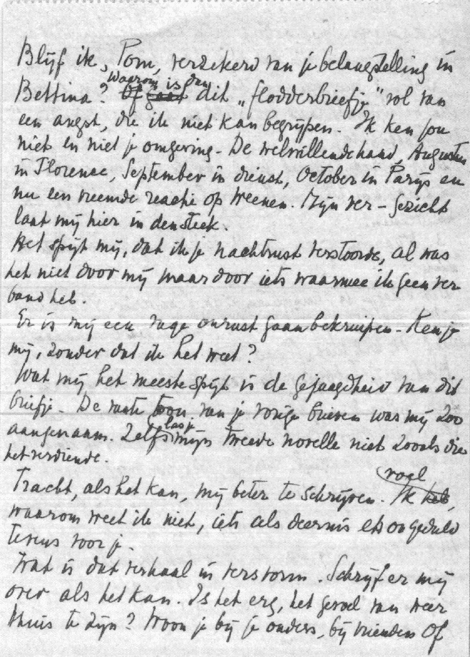 Blijf ik, Pom, verzekerd van je belangstelling in
Bettina? Waarom is dan dit „flodderbriefje" vol van
een angst, die ik niet kan begrijpen. Ik ken jou
niet en niet je omgeving. De welwillende hand, Augustus
in Florence, September in dienst, October in Parijs en
nu een vreemde reactie op Weenen. Mijn ver-gezicht
laat mij hier in den steek.
Het spijt mij, dat ik je nachtrust verstoorde, al was
het niet door mij maar door iets waarmee ik geen ver
band heb.
Er is mij een vage onrust gaan bekruipen. Ken je
mij, zonder dat ik het weet?
Wat mij het meeste spijt is de gejaagdheid van dit
briefje. De vaste toon van je vorige brieven was mij zoo
aangenaam. Zelfs las je mijn tweede novelle niet zooals die
het verdiende.
Tracht, als het kan, mij beter te schrijven. Ik voel,
waarom weet ik niet, iets als deernis en ongeduld
tevens voor je.
Wat is dat verhaal in versvorm. Schrijf er mij
over als het kan. Is het erg, het gevoel van weer
thuis te zijn? Woon je bij je ouders, bij vrienden of